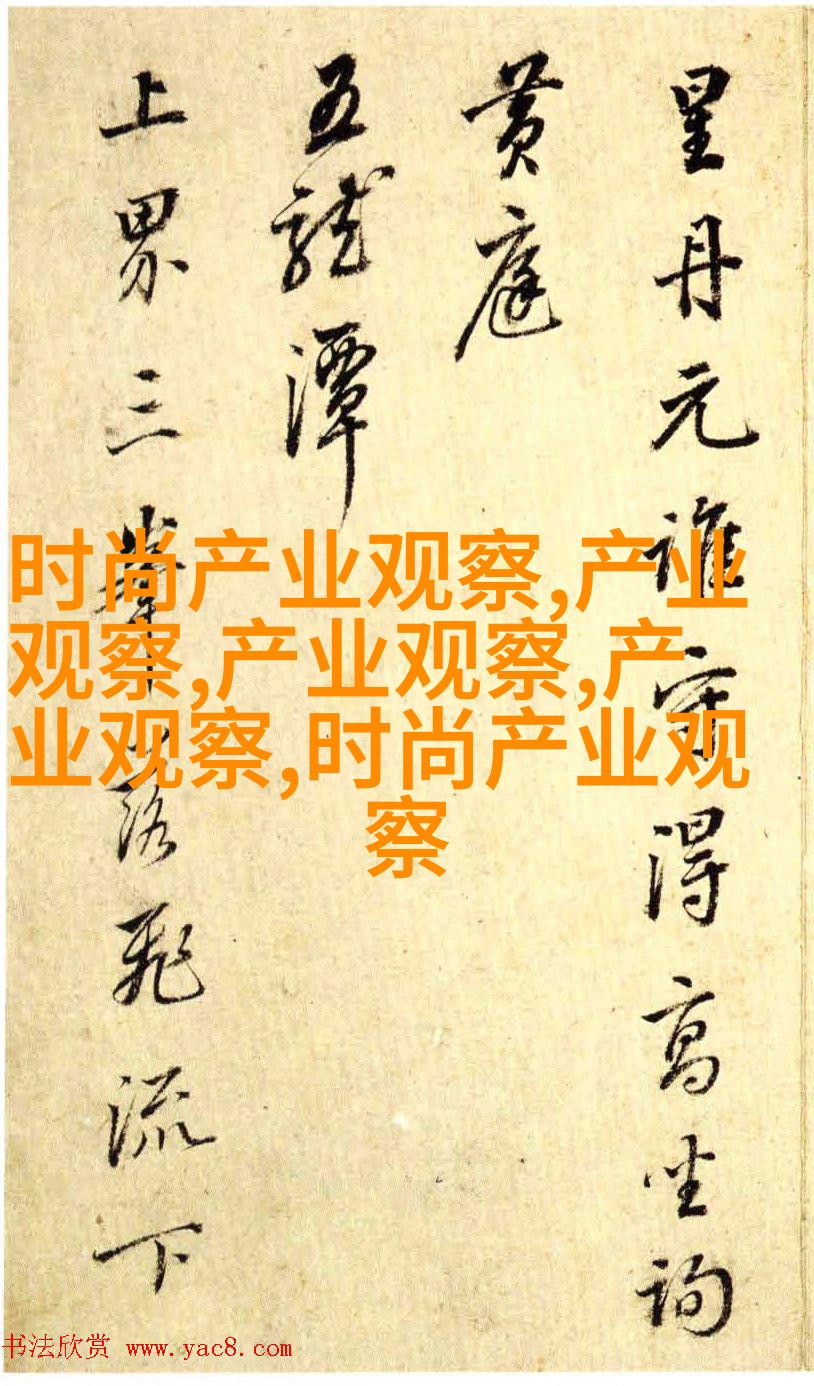 星丹元誰守得高坐詢
黄庭
五龍潭
上界三峯落飛流下
时尚产业观察,产业
观察,产业观察,产
业观察,时尚产业观
察
书法欣赏 www.yac8.com